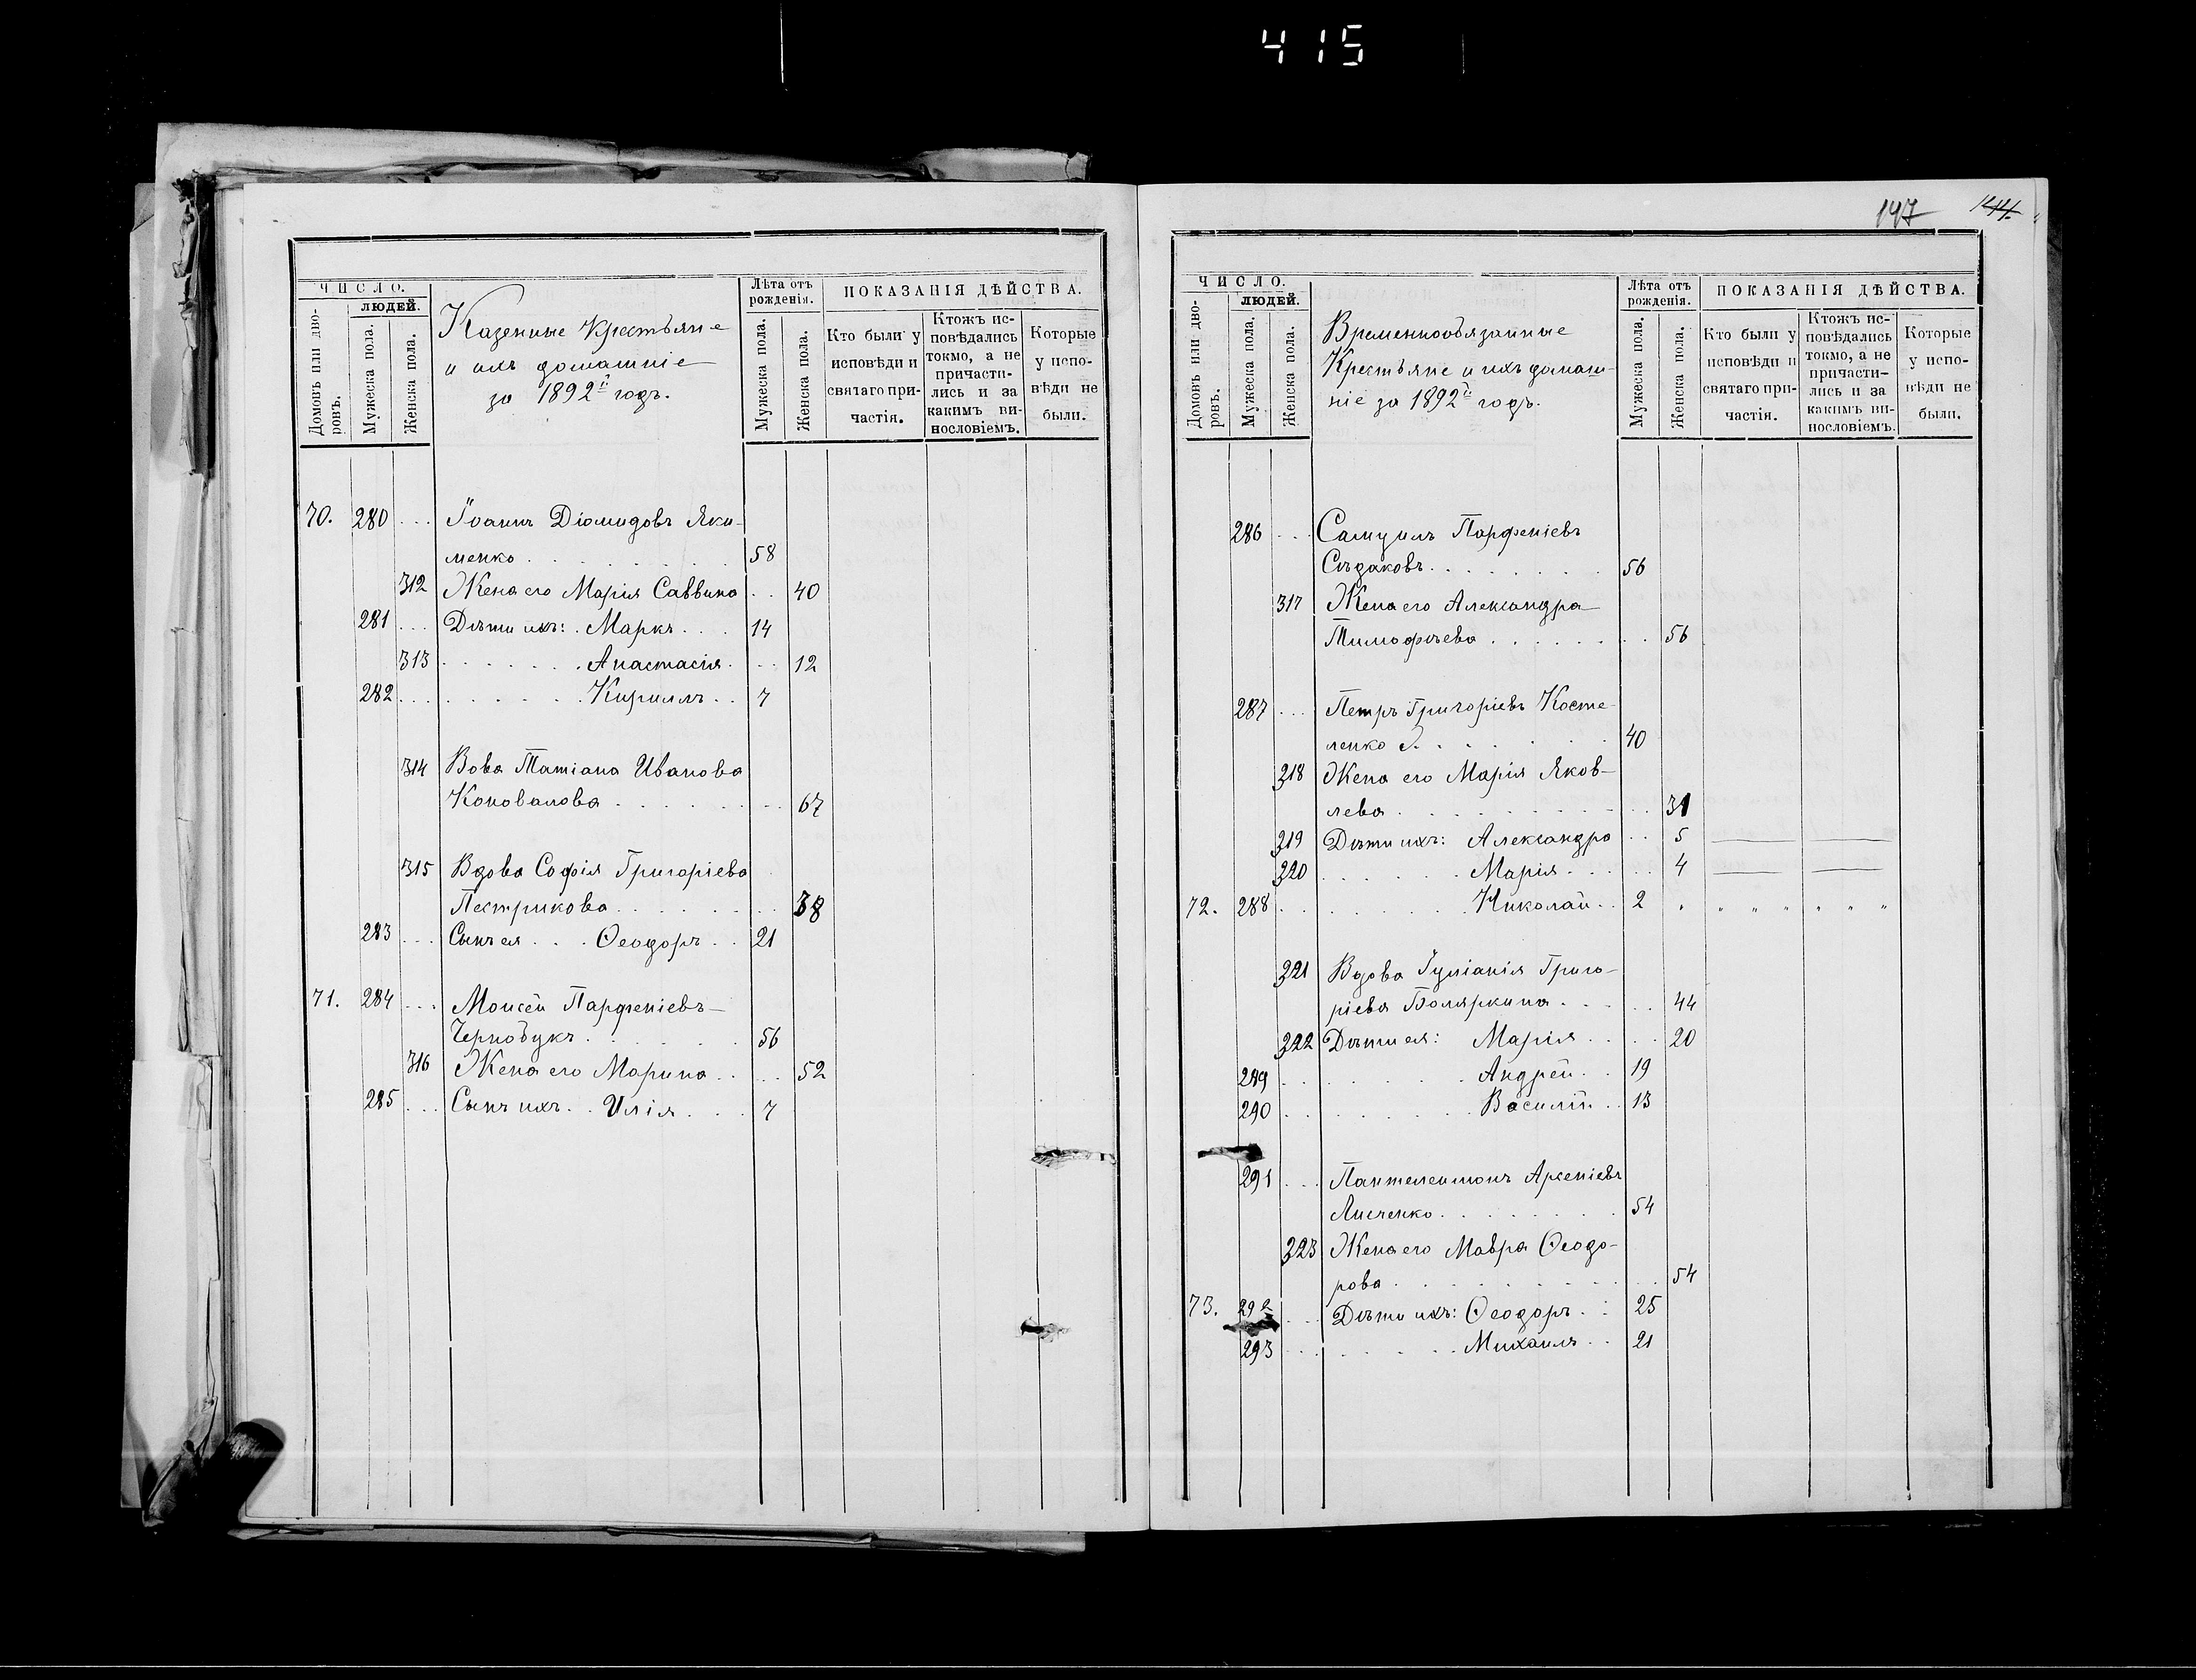 415
ЧИСЛО.
Домовъ или дво-
ровъ.
ЛЮДЕЙ.
Мужеска пола.
Женска пола.
Казенные Крестьяне
и ихъ домашніе
за 1892й годъ.
Лѣта отъ
рожденія.
Мужеска пола.
Женска пола.
ПОКАЗАНІЯ ДѢЙСТВА.
Кто были у
исповѣди и
святаго при-
частія.
Ктожъ ис-
повѣдались
токмо, а не
причасти-
лись и за
какимъ ви-
нословіемъ.
Которые
у испо-
вѣди не
были.
70. 280 . . . Іоаннъ Діомидовъ Яки-
менко . . . . . . . 58
312 Жена его Марія Саввина . . 40
281 . . . Дѣти ихъ: . Маркъ . . . 14
313 . . . . . . . Анастасія . . . 12
282 . . . . . . . . . Кириллъ . . 7
314 Вова Татіана Иванова
Коновалова . . . . . . . 67
315 Вдова Софія Григоріева
Пестрикова . . . . . . . 38
283 . . . Сынъ ея . . . Ѳеодоръ . . 21
71. 284 . . . Моисей Парѳеніевъ
Чернобукъ . . . . . . 56
316 Жена его Марина . . . . . 52
285 . . . Сынъ ихъ . . Илія . . . 7
147 144
ЧИСЛО.
Домовъ или дво-
ровъ.
ЛЮДЕЙ.
Мужеска пола.
Женска пола.
Временнообязанные
Крестьяне и ихъ домаш-
ніе за 1892й годъ.
Лѣта отъ
рожденія.
Мужеска пола.
Женска пола.
ПОКАЗАНІЯ ДѢЙСТВА.
Кто были у
исповѣди и
святаго при-
частія.
Ктожъ ис-
повѣдались
токмо, а не
причасти-
лись и за
какимъ ви-
нословіемъ.
Которые
у испо-
вѣди не
были.
286 . . . Самуилъ Парфеніевъ
Сѣдаковъ . . . . . . . 56
317 Жена его Александра
Тимофѣева . . . . . . . 56
287 . . . Петръ Григоріевъ Косте-
ленко . . . . . . 40
318 Жена его Марія Яков-
лева . . . . . . . . . 31
319 Дѣти ихъ: Александра . . 5
320 . . . . . . Марія . . . . . 4
72. 288 . . . . . . . . Николай . . 2 " " " " " " " "
321 Вдова Іуліанія Григо-
ріева Боляркина . . . . . 44
322 Дѣти ея: Марія . . . . 20
289 . . . . . . . Андрей . . 19
290 . . . . . . . . Василій . . 13
291 . . . Пантелеимонъ Арсеніевъ
Лисченко . . . . . . . 54
323 Жена его Мавра Ѳеодо-
рова . . . . . . . . . . 54
73. 292 . . . Дѣти ихъ: Ѳеодоръ . . 25
293 . . . . . . . . Михаилъ . . 21